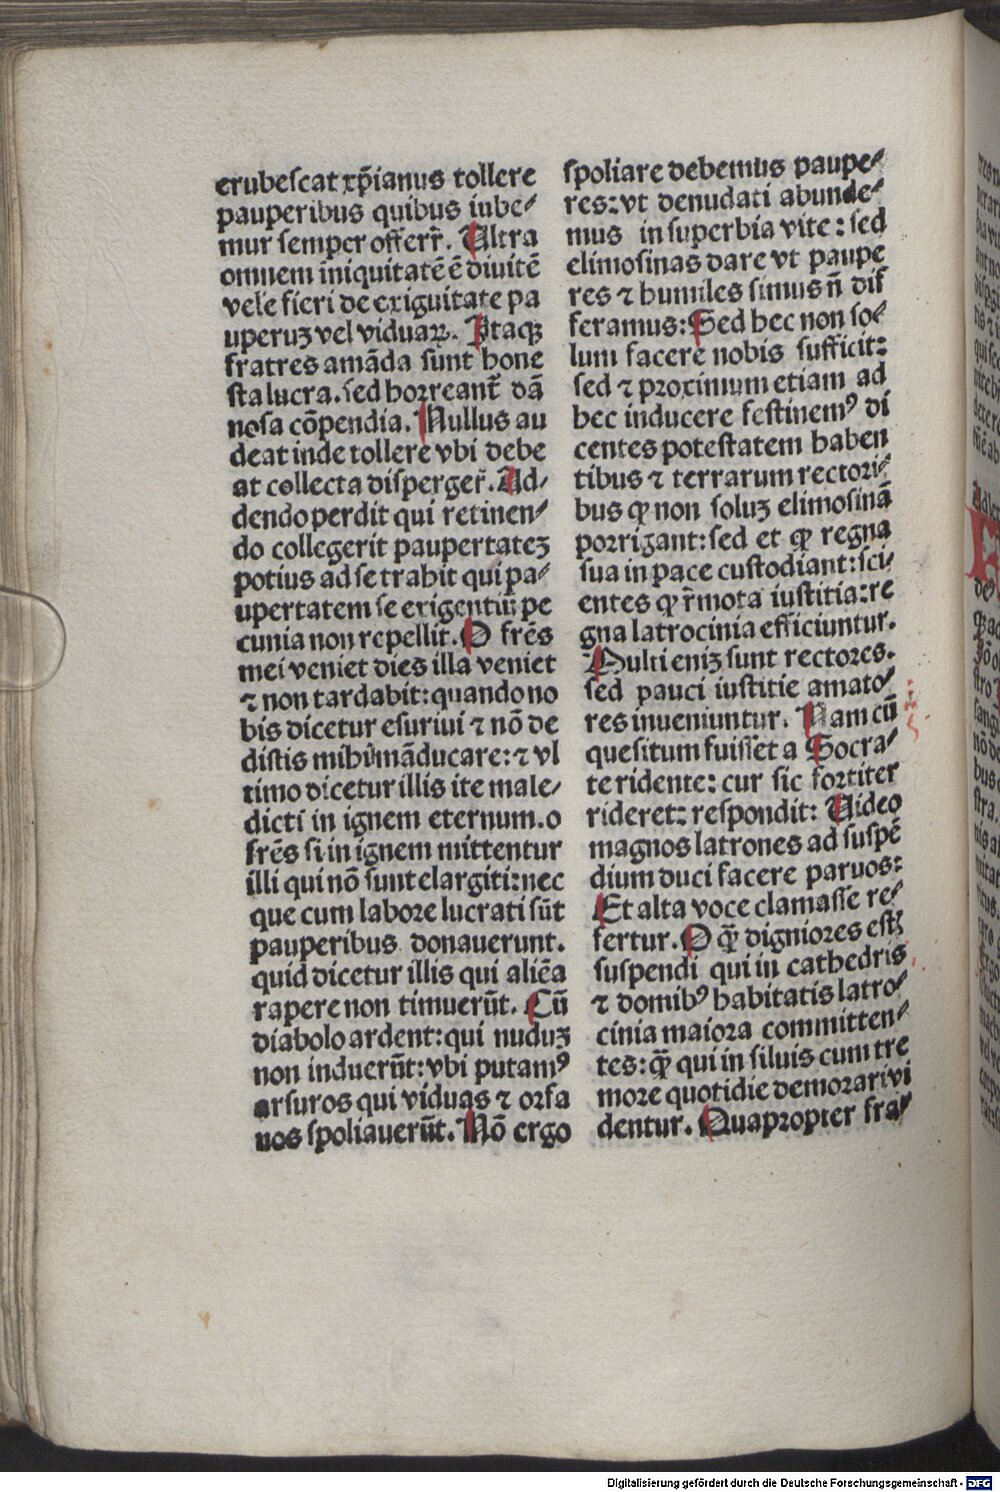 erubeſcat xp̄ianus tollere
pauperibus quibus iube⸗
mur ſemper offerr̄. Ultra
omnem iniquitatē ē diuitē
vele fieri de exiguitate pa
uperuꝫ vel viduaꝝ. Itaqꝫ
fratres amāda ſunt hone
ſta lucra. ſed horreant̄ dā
noſa cōpendia. Nullus au
deat inde tollere vbi debe
at collecta diſperger̄. Ad⸗
dendo perdit qui retinen⸗
do collegerit paupertateꝫ
potius ad ſe trahit qui pa⸗
upertatem ſe exigentiū pe
cunia non repellit. O frēs
mei veniet dies illa veniet
⁊ non tardabit: quando no
bis dicetur eſuriui ⁊ nō de
diſtis mihi māducare: ⁊ vl
timo dicetur illis ite male⸗
dicti in ignem eternum. o
frēs ſi in ignem mittentur
illi qui nō ſunt elargiti: nec
que cum labore lucrati ſūt
pauperibus donauerunt.
quid dicetur illis qui aliēa
rapere non timuerūt. Cū
diabolo ardent: qui nuduꝫ
non induerūt: vbi putamꝰ
arſuros qui viduas ⁊ orfa
nos ſpoliauerūt. Nō ergo
ſpoliare debemus paupe⸗
res: vt denudati abunde⸗
mus in ſuperbia vite: ſed
elimoſinas dare vt paupe
res ⁊ humiles ſimus n̄ diſ
feramus: Sed hec non ſo⸗
lum facere nobis ſufficit:
ſed ⁊ proximum etiam ad
hec inducere feſtinemꝰ di
centes poteſtatem haben
tibus ⁊ terrarum rectori⸗
bus ꝙ non ſoluꝫ elimoſinā
porrigant: ſed et ꝙ regna
ſua in pace cuſtodiant: ſci⸗
entes ꝙ r̄mota iuſtitia: re
gna latrocinia efficiuntur.
Multi eniꝫ ſunt rectores.
ſed pauci iuſtitie amato⸗
res inueniuntur. Nam cū
queſitum fuiſſet a Socra⸗
te ridente: cur ſic fortiter
rideret: reſpondit: Uideo
magnos latrones ad ſuſpē
dium duci facere paruos:
Et alta voce clamaſſe re⸗
fertur. O ꝙ̄ digniores eſtꝭ
ſuſpendi qui in cathedris
⁊ domibꝰ habitatis latro⸗
cinia maiora committen⸗
tes: ꝙ̄ qui in ſiluis cum tre
more quotidie demorari vi
dentur. Quapropter fra⸗
Digitalisierung gefördert durch die Deutsche Forschungsgemeinschaft - DFG